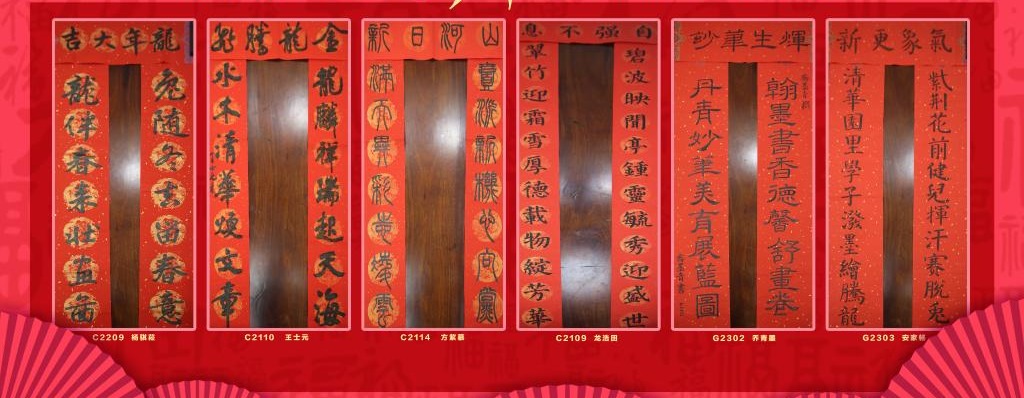 龍年大吉
兔随冬去留春意
龍伴春来壮画
C2209
金龍騰飛
龍麟祥瑞起天海
水木清華煥文章
C2110 王士元
山河日新
新樓也向
滿天異彩步凌雲
C2114
自强不息
碧波映閒亭鍾靈毓秀迎盛世
翠竹迎霜雪厚德載物綻芳華
C2109 龙浩田
妙筆生輝
翰墨書香德馨舒畫卷
丹青妙筆美育展藍圖
G2302
氣象更新
紫荆花前健兒揮汗賽脱兔
清華園里學子潑墨繪騰龍
G2303 安家